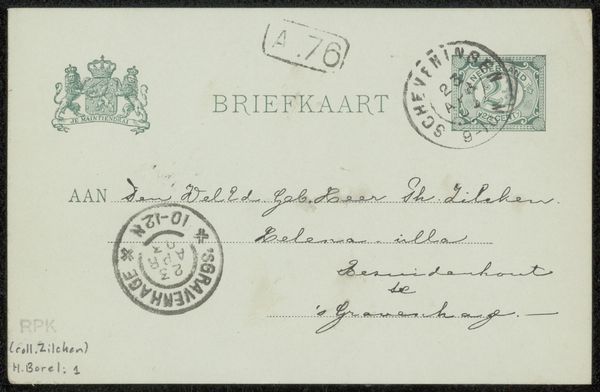 A.76
JE MAINTIENDRAI
BRIEFKAART
NEDERLAND
2½
CENT
SCHEVENINGEN
23
APR
AAN Den WelEd. Geb. Heer Ph. Zilcken.
Helena villa
Bezuidenhout
te
's Gravenhage.—
'SGRAVENHAGE
23
APR
03
10-12N
RPK
(coll. Zilcken)
H. Borel: 1